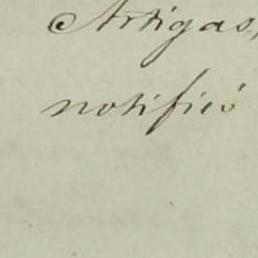 Artigas,
notificó